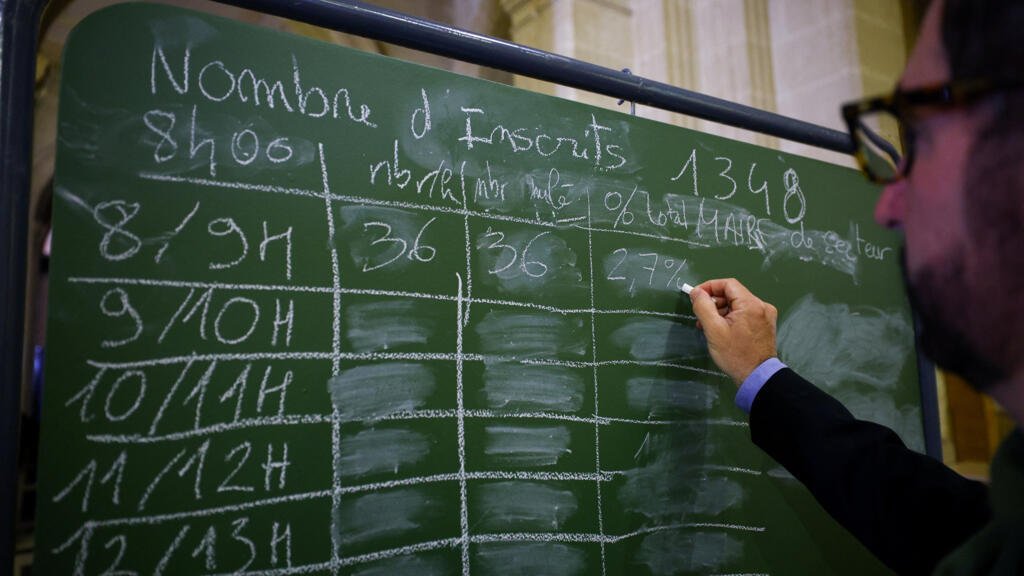 Nombre d'Inscrits 1348
8h00 nbr/h nbr % total MAIRE de
8/9H 36 36 2,7%
9/10H
10/11H
11/12H
12/13H